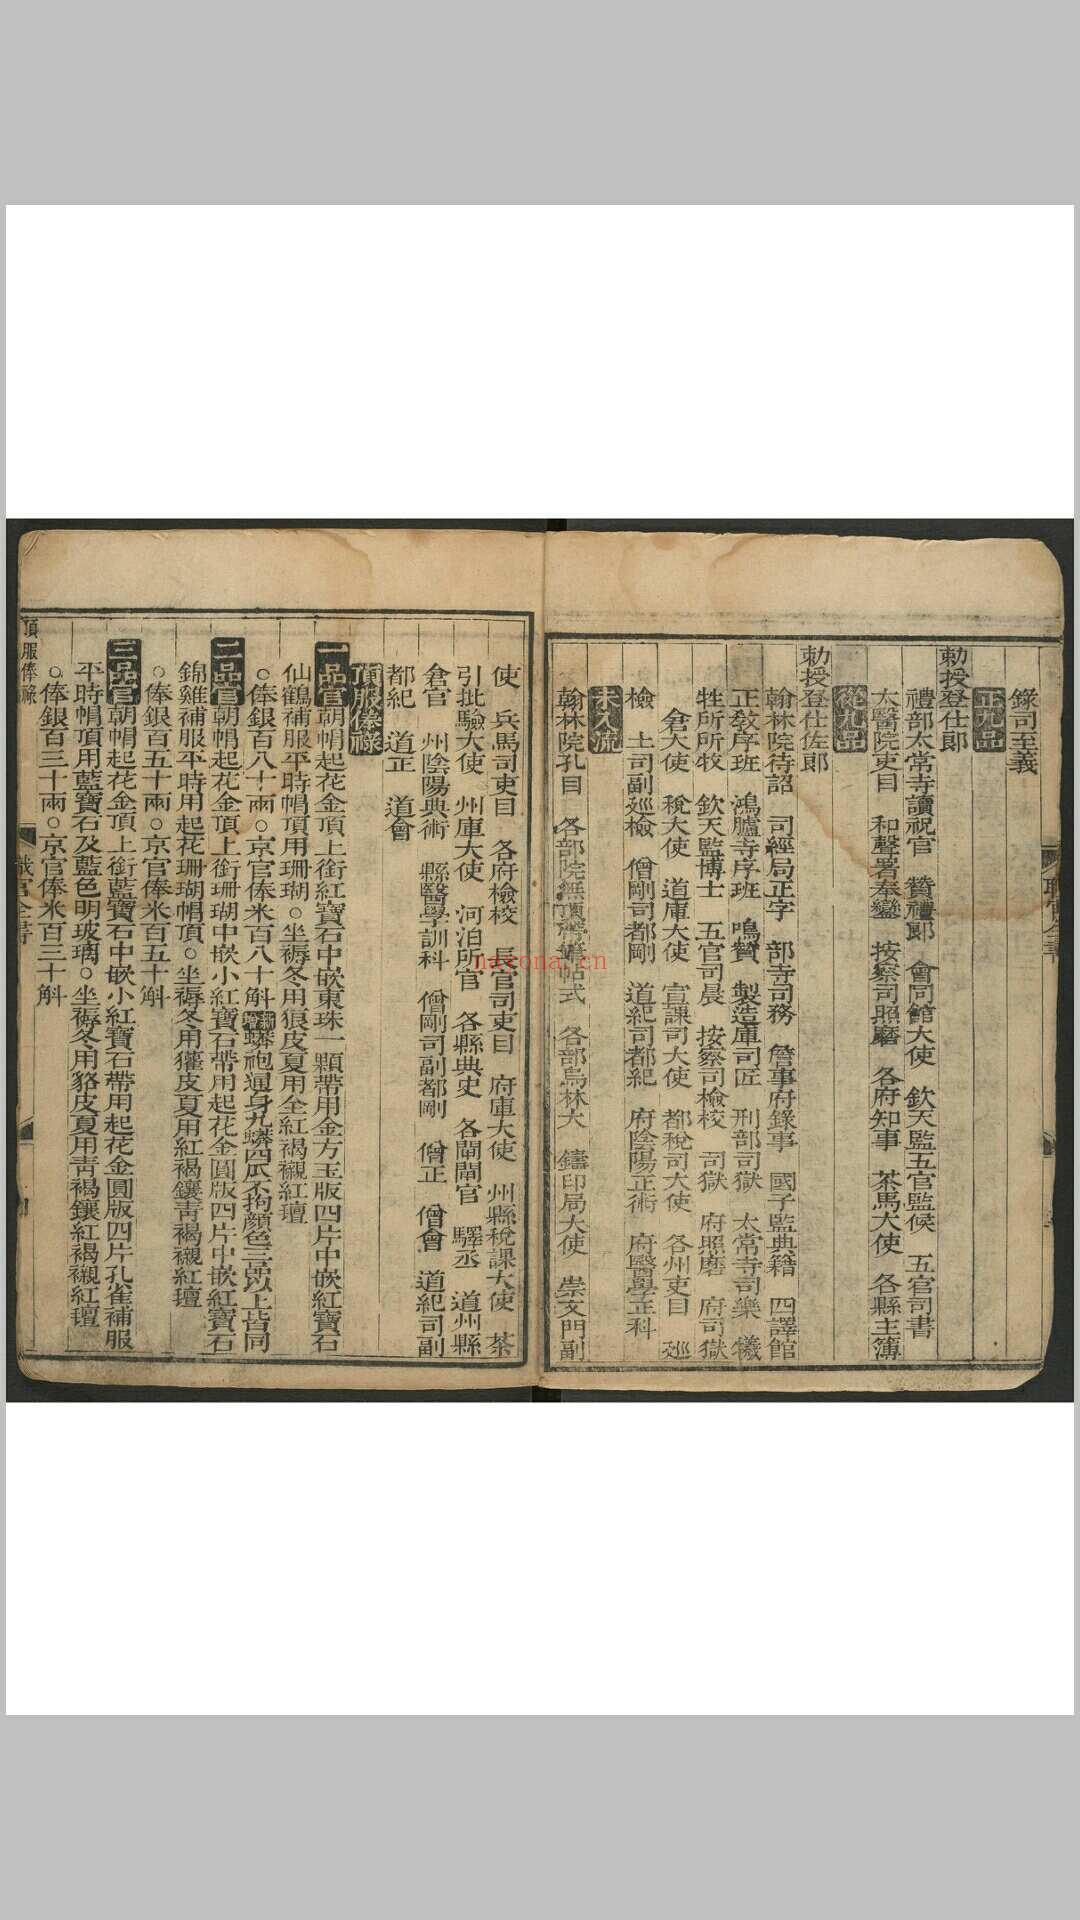 錄司至義
正九品
勅授登仕郎
禮部太常寺讀祝官　贊禮郎　會同館大使　欽天監五官監候　五官司書
太醫院吏目　和聲署奉鑾　按察司照磨　各府知事　茶馬大使　各縣主簿
從九品
勅授登仕佐郎
翰林院待詔　司經局正字　部寺司務　詹事府錄事　國子監典籍　四譯館
正教序班　鴻臚寺序班　鳴贊　製造庫司匠　刑部司獄　太常寺司樂　犧
牲所所牧　欽天監博士　五官司晨　按察司檢校　司獄　府照磨　府司獄
倉大使　稅大使　道庫大使　宣課司大使　都稅司大使　各州吏目　廵
檢　土司副廵檢　僧剛司都剛　道紀司都紀　府陰陽正術　府醫學正科
未入流
翰林院孔目　各部院無頂帶帖式　各部烏林大　鑄印局大使　崇文門副
使　兵馬司吏目　各府檢校　長官司吏目　府庫大使　州縣稅課大使　茶
引批驗大使　州庫大使　河泊所官　各縣典史　各閘閘官　驛丞　道州縣
倉官　州陰陽典術　縣醫學訓科　僧剛司副都剛　僧正　僧會　道紀司副
都紀　道正　道會
頂服俸祿
一品官朝帽起花金頂上銜紅寶石中嵌東珠一顆帶用金方玉版四片中嵌紅寶石
仙鶴補服平時帽頂用珊瑚○坐褥冬用狼皮夏用全紅褐襯紅氊
○俸銀百八十兩○京官俸米百八十斛新增蟒袍通身九蟒四爪不拘顏色三品以上皆同
二品官朝帽起花金頂上銜珊瑚中嵌小紅寶石帶用起花金圓版四片中嵌紅寶石
錦雞補服平時用起花珊瑚帽頂○坐褥冬用獾皮夏用紅褐鑲靑褐襯紅氊
○俸銀百五十兩○京官俸米百五十斛
三品官朝帽起花金頂上銜藍寶石中嵌小紅寶石帶用起花金圓版四片孔雀補服
平時帽頂用藍寶石及藍色明玻璃○坐褥冬用貉皮夏用靑褐鑲紅褐襯紅氊
○俸銀百三十兩○京官俸米百三十斛
頂服俸祿
nayona.cn